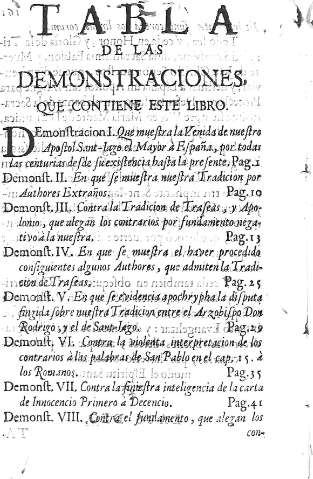 TABLA
DE LAS
DEMONSTRACIONES,
QUE CONTIENE ESTE LIBRO.
DEmonstracion I. Que muestra la Venida de nuestro
Apostol Sant-Iago el Mayor à España, por todas
las centurias desde su existencia hasta la presente. Pag.1
Demonst. II. En què se muestra nuestra Tradicion por
Authores Extraños. Pag.10
Demonst. III. Contra la Tradicion de Traseas, y Apo-
lonio, que alegan los contrarios por fundamento nega-
tivo à la nuestra. Pag.13
Demonst. IV. En que se muestra el haver procedido
consiguientes algunos Authores, que admiten la Tradi-
cion de Traseas. Pag.25
Demonst. V. En que se evidencia apochrypha la disputa
fingida sobre nuestra Tradicion entre el Arzobispo Don
Rodrigo, y el de Sant-Iago. Pag.29
Demonst. VI. Contra la violenta interpretacion de los
contrarios à las palabras de San Pablo en el cap. 15. à
los Romanos. Pag.35
Demonst. VII. Contra la siniestra inteligencia de la carta
de Innocencio Primero à Decencio. Pag.41
Demonst. VIII. Contra el fundamento, que alegan los
con-